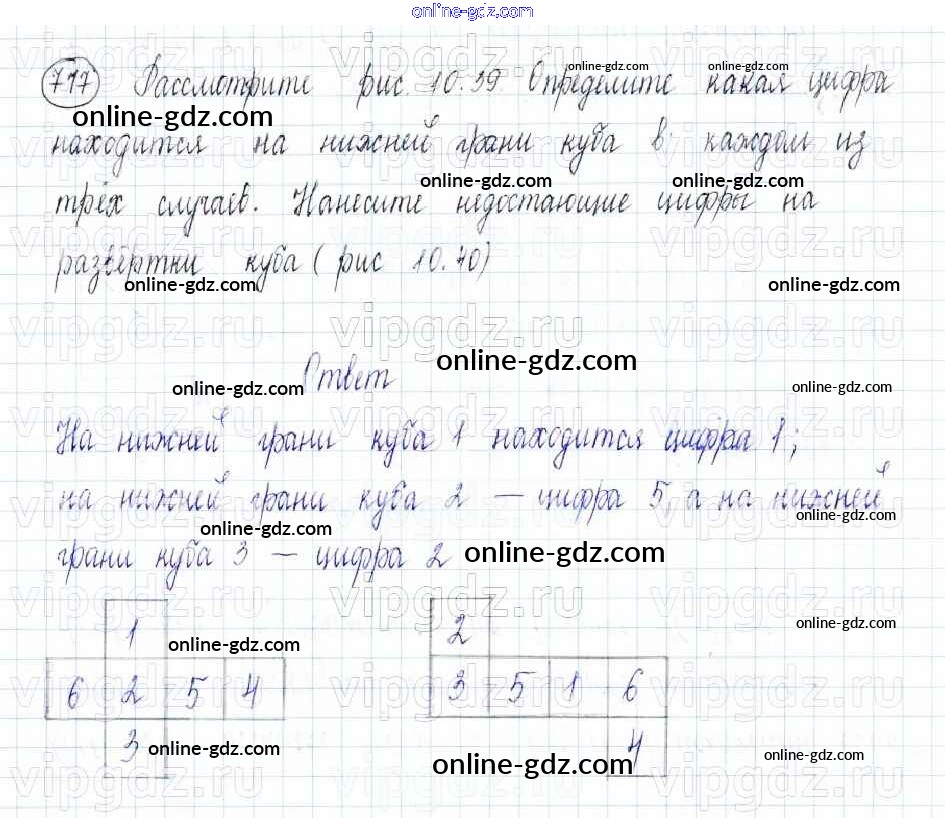 online-gdz.com
717 Рассмотрите рис. 10.39 Определите какая цифра
находится на нижней грани куба в каждом из
трёх случаев. Нанесите недостающие цифры на
развёртки куба (рис 10.40)
Ответ
На нижней грани куба 1 находится цифра 1;
на нижней грани куба 2 – цифра 5, а на нижней
грани куба 3 – цифра 2
1 2
6 2 5 4 3 5 1 6
3 4
online-gdz.com
vipgdz.ru